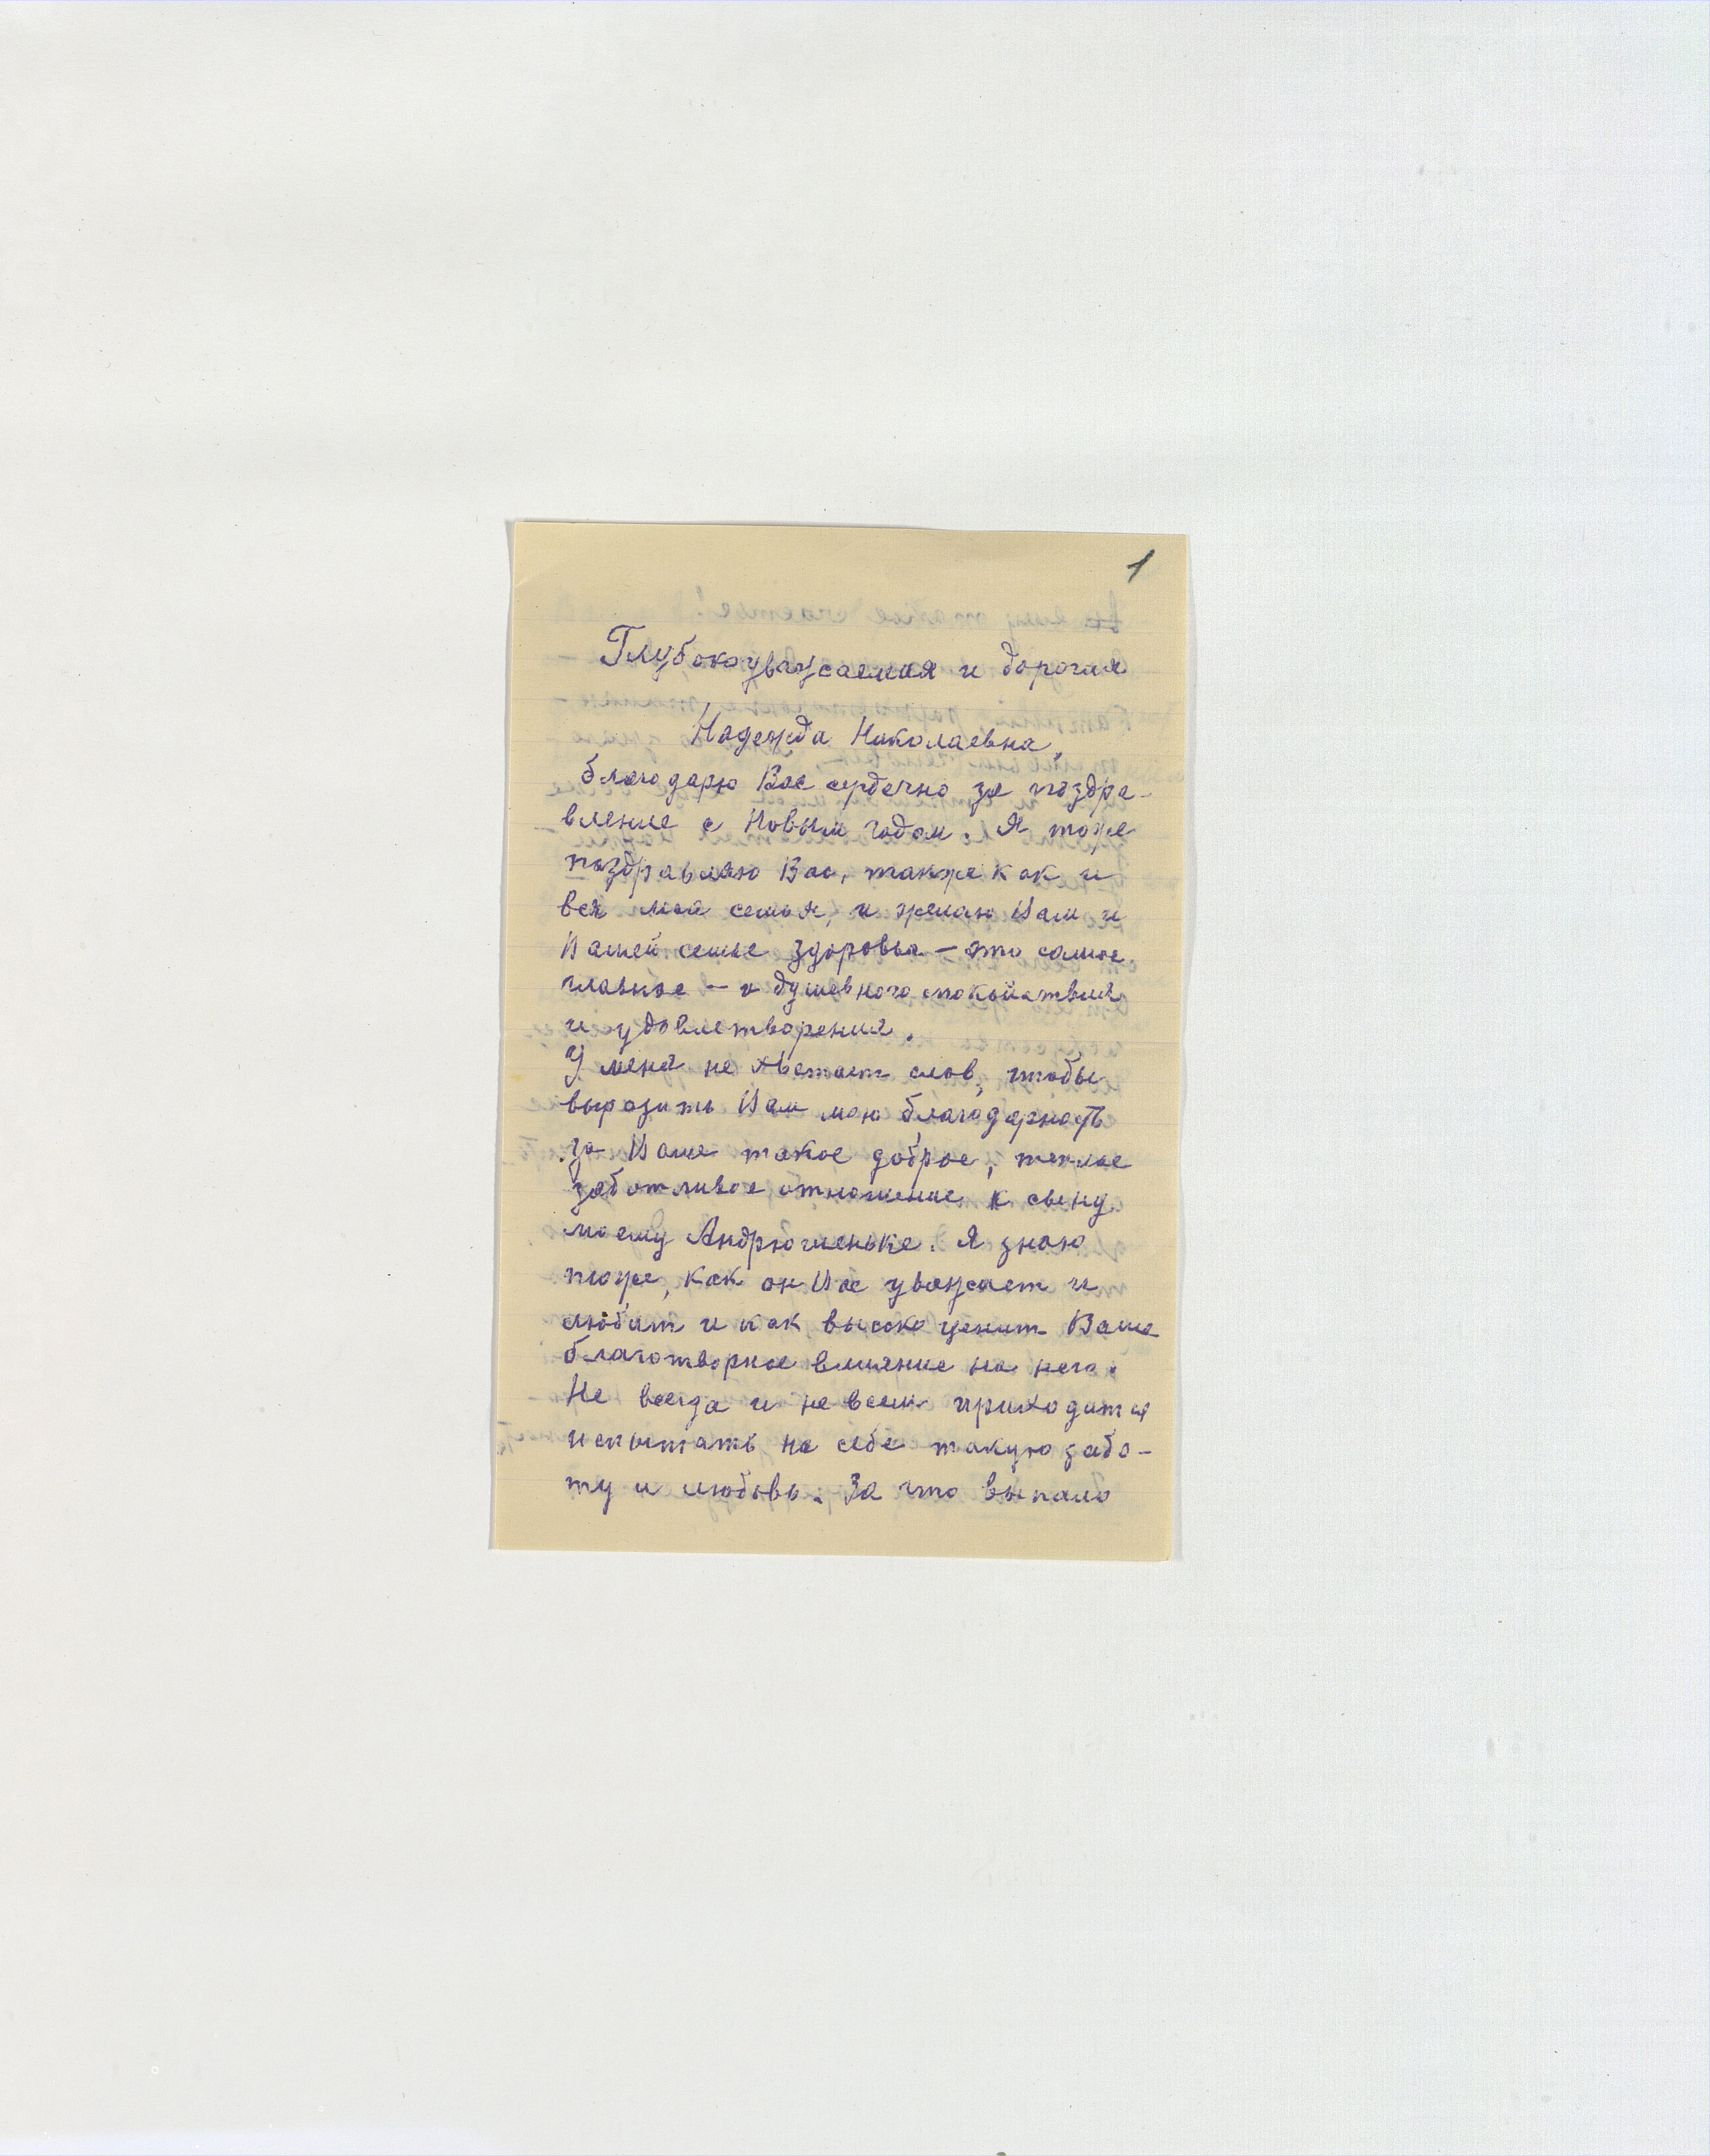 1
Глубокоуважаемая и дорогая
Надежда Николаевна,
благодарю Вас сердечно за поздра-
вление с Новым годом. Я тоже
поздравляю Вас, также как и
вся моя семья, и желаю Вам и
Вашей семье здоровья – это самое
главное – и душевного спокойствия
и удовлетворения.
У меня не хватает слов, чтобы
выразить Вам мою благодарность
за Ваше такое доброе, теплое
заботливое отношение к сыну
моему Андрюшеньке. Я знаю
тоже, как он Вас уважает и
любит и как высоко ценит Ваше
благотворное влияние на него.
Не всегда и не всем приходится
испытать на себе такую забо-
ту и любовь. За что выпало